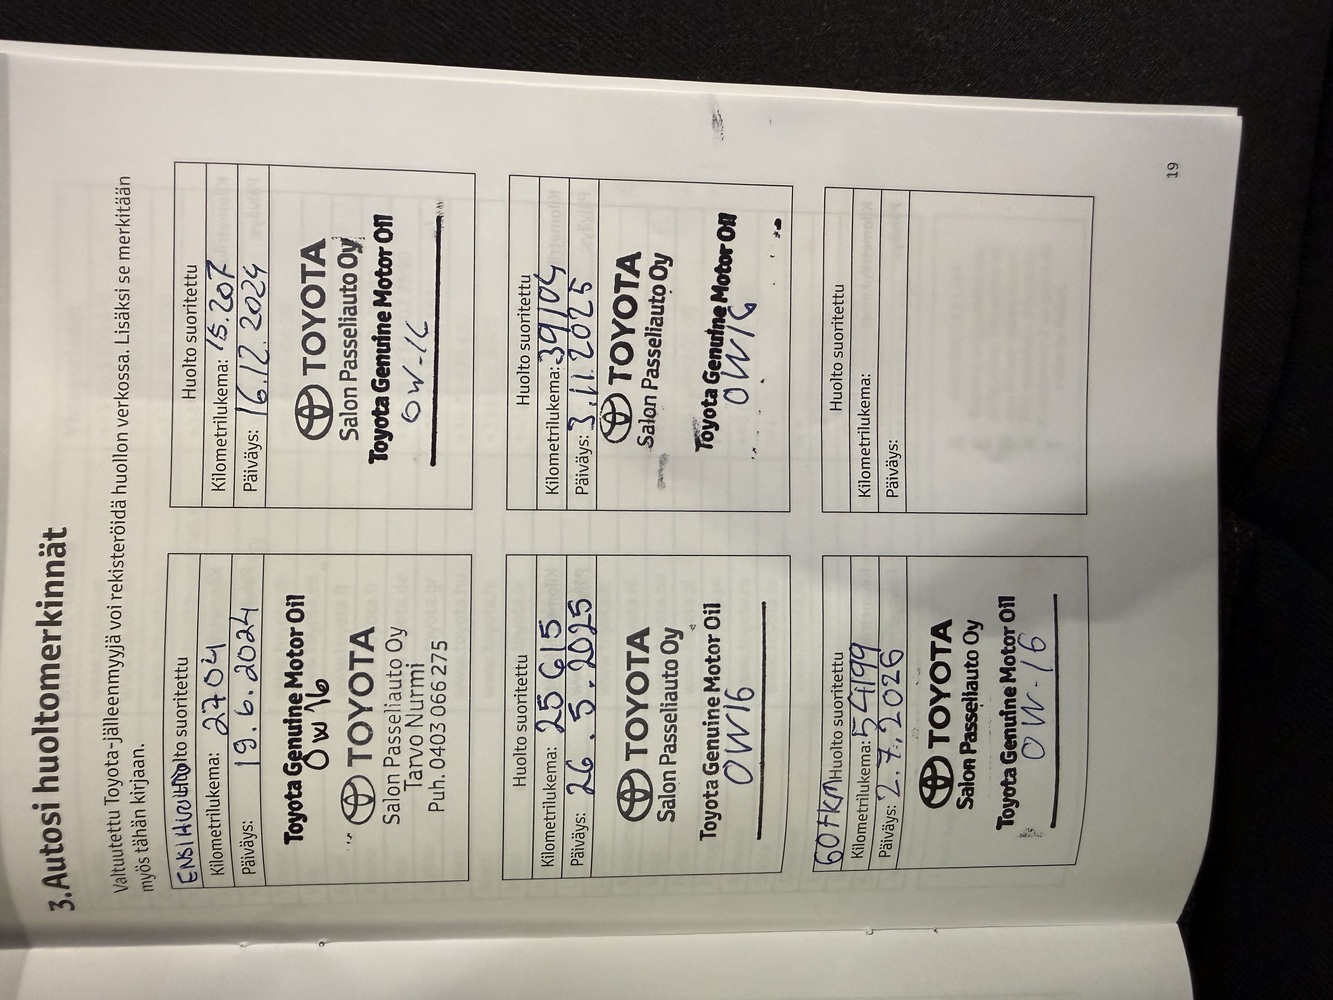 3. Autosi huoltomerkinnät
Valtuutettu Toyota-jälleenmyyjä voi rekisteröidä huollon verkossa. Lisäksi se merkitään
myös tähän kirjaan.
ENSIHUOLTO Huolto suoritettu
Kilometrilukema: 2704
Päiväys: 19.6.2024
Toyota Genuine Motor Oil
0W16
TOYOTA
Salon Passeliauto Oy
Tarvo Nurmi
Puh. 0403 066 275
Huolto suoritettu
Kilometrilukema: 15.207
Päiväys: 16.12.2024
TOYOTA
Salon Passeliauto Oy
Toyota Genuine Motor Oil
0W-16
Huolto suoritettu
Kilometrilukema: 25615
Päiväys: 26.5.2025
TOYOTA
Salon Passeliauto Oy
Toyota Genuine Motor Oil
0W16
Huolto suoritettu
Kilometrilukema: 39104
Päiväys: 3.11.2025
TOYOTA
Salon Passeliauto Oy
Toyota Genuine Motor Oil
0W16
60TKM Huolto suoritettu
Kilometrilukema: 54199
Päiväys: 2.7.2026
TOYOTA
Salon Passeliauto Oy
Toyota Genuine Motor Oil
0W-16
Huolto suoritettu
Kilometrilukema:
Päiväys:
19